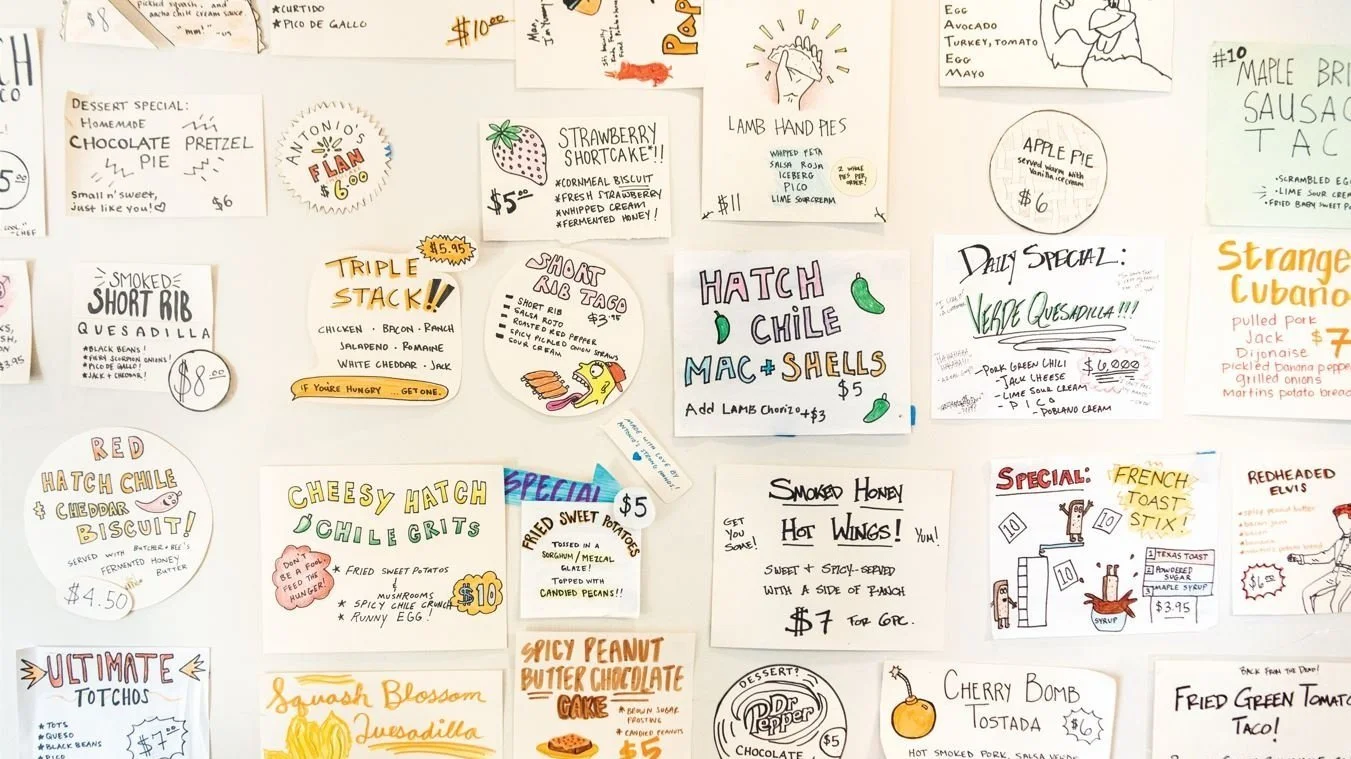 $8
pickled squash, and
ancho chili cream sauce.
"mm!" -us
*CURTIDO
*PICO DE GALLO
$10.00
Man,
I'm Yummy
Pap
LAMB HAND PIES
WHIPPED FETA
SALSA ROJA
ICEBERG
PICO
LIME SOUR CREAM
2 WHOLE
PIES PER
ORDER!
$11
EGG
AVOCADO
TURKEY, TOMATO
EGG
MAYO
#10
MAPLE BRI
SAUSAG
TAC
SCRAMBLED EG
LIME SOUR CREA
FRIED BABY SWEET P
CH
CO
5.00
-CHEF
DESSERT SPECIAL:
HOMEMADE
CHOCOLATE PRETZEL
PIE
Small n' sweet,
just like you!♡
$6
ANTONIO'S
FLAN
$6.00
STRAWBERRY
SHORTCAKE"!!
*CORNMEAL BISCUIT
*FRESH STRAWBERRY
*WHIPPED CREAM
*FERMENTED HONEY!
$5.00
APPLE PIE
served warm with
Vanilla ice cream
$6
$3.95
SMOKED
SHORT RIB
QUESADILLA
*BLACK BEANS!
*FIERY SCORPION ONIONS!
*PICO DE GALLO!
*JACK + CHEDDAR!
$8.00
$5.95
TRIPLE
STACK!!
CHICKEN · BACON · RANCH
JALAPENO · ROMAINE
WHITE CHEDDAR · JACK
IF YOU'RE HUNGRY ...GET ONE.
SHORT
RIB TACO
$3.95
SHORT RIB
SALSA ROJO
ROASTED RED PEPPER
SPICY PICKLED ONION STRAWS
SOUR CREAM
HATCH
CHILE
MAC + SHELLS
$5
Add LAMB Chorizo +$3
DAILY SPECIAL:
VERDE QUESADILLA!!!
-PORK GREEN CHILI
-JACK CHEESE
-LIME SOUR CREAM
-PICO
-POBLANO CREAM
$6,000
Strange
Cubano
pulled pork
Jack
Dijonaise
pickled banana peppe
grilled onions
Martins potato bread
$7
RED
HATCH CHILE
& CHEDDAR
BISCUIT!
SERVED WITH BUTCHER + BEE'S
FERMENTED HONEY
BUTTER
$4.50
CHEESY HATCH
CHILE GRITS
DON'T
BE A FOOL
FEED THE
HUNGER!
* FRIED SWEET POTATOS
&
MUSHROOMS
* SPICY CHILE CRUNCH
* RUNNY EGG!
$10
MADE WITH LOVE BY
ANTONIO'S STRONG HANDS!
SPECIAL
$5
FRIED SWEET POTATOES
TOSSED IN A
SORGHUM/MEZCAL
GLAZE!
TOPPED WITH
CANDIED PECANS!!
SMOKED HONEY
HOT WINGS!
GET
YOU
SOME!
YUM!
SWEET + SPICY-SERVED
WITH A SIDE OF RANCH
$7 FOR 6PC.
SPECIAL:
FRENCH
TOAST
STIX!
10
10
10
1 TEXAS TOAST
2 POWDERED
SUGAR
3 MAPLE SYRUP
$3.95
SYRUP
REDHEADED
ELVIS
spicy peanut butter
bacon jam
banana
martins potato bread
$6.00
ULTIMATE
TOTCHOS
*TOTS
*QUESO
*BLACK BEANS
*PICO
$7.00
Squash Blossom
Quesadilla
SPICY PEANUT
BUTTER CHOCOLATE
CAKE
* BROWN SUGAR
FROSTING
* CANDIED PEANUTS
$5
DESSERT?
Dr
Pepper
CHOCOLATE
$5
CHERRY BOMB
TOSTADA
$6
HOT SMOKED PORK, SALSA VERDE
BACK FROM THE DEAD!
FRIED GREEN TOMATO
TACO!